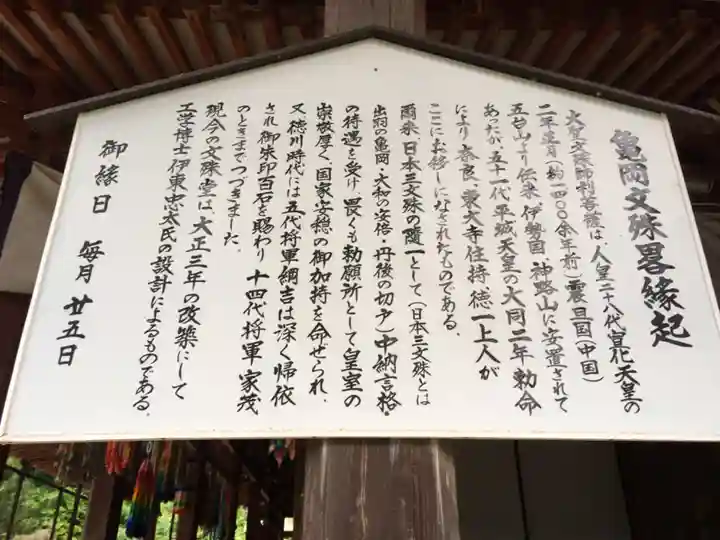 亀岡文殊畧縁起
大聖文殊師利菩薩は、人皇二十八代宣化天皇の
二年五月(約一四〇〇余年前)震旦国(中国)
五台山より伝来、伊勢国、神路山に安置されて
あったが、五十一代平城天皇の大同二年勅命
により奈良、東大寺住持徳一上人が
ここにお移しになされたものである。
爾来、日本三文殊の随一として(日本三文殊とは
出羽の亀岡・大和の安倍・丹後の切戸)中納言格・
の待遇を受け、畏くも勅願所として皇室の
崇敬厚く、国家安穏の御加持を命ぜられ、
又徳川時代には五代将軍綱吉は深く帰依
され御朱印百石を賜わり十四代将軍家茂
のときまでつづきました。
現今の文殊堂は、大正三年の改築にして
工学博士伊東忠太氏の設計によるものである。
御縁日 毎月廿五日